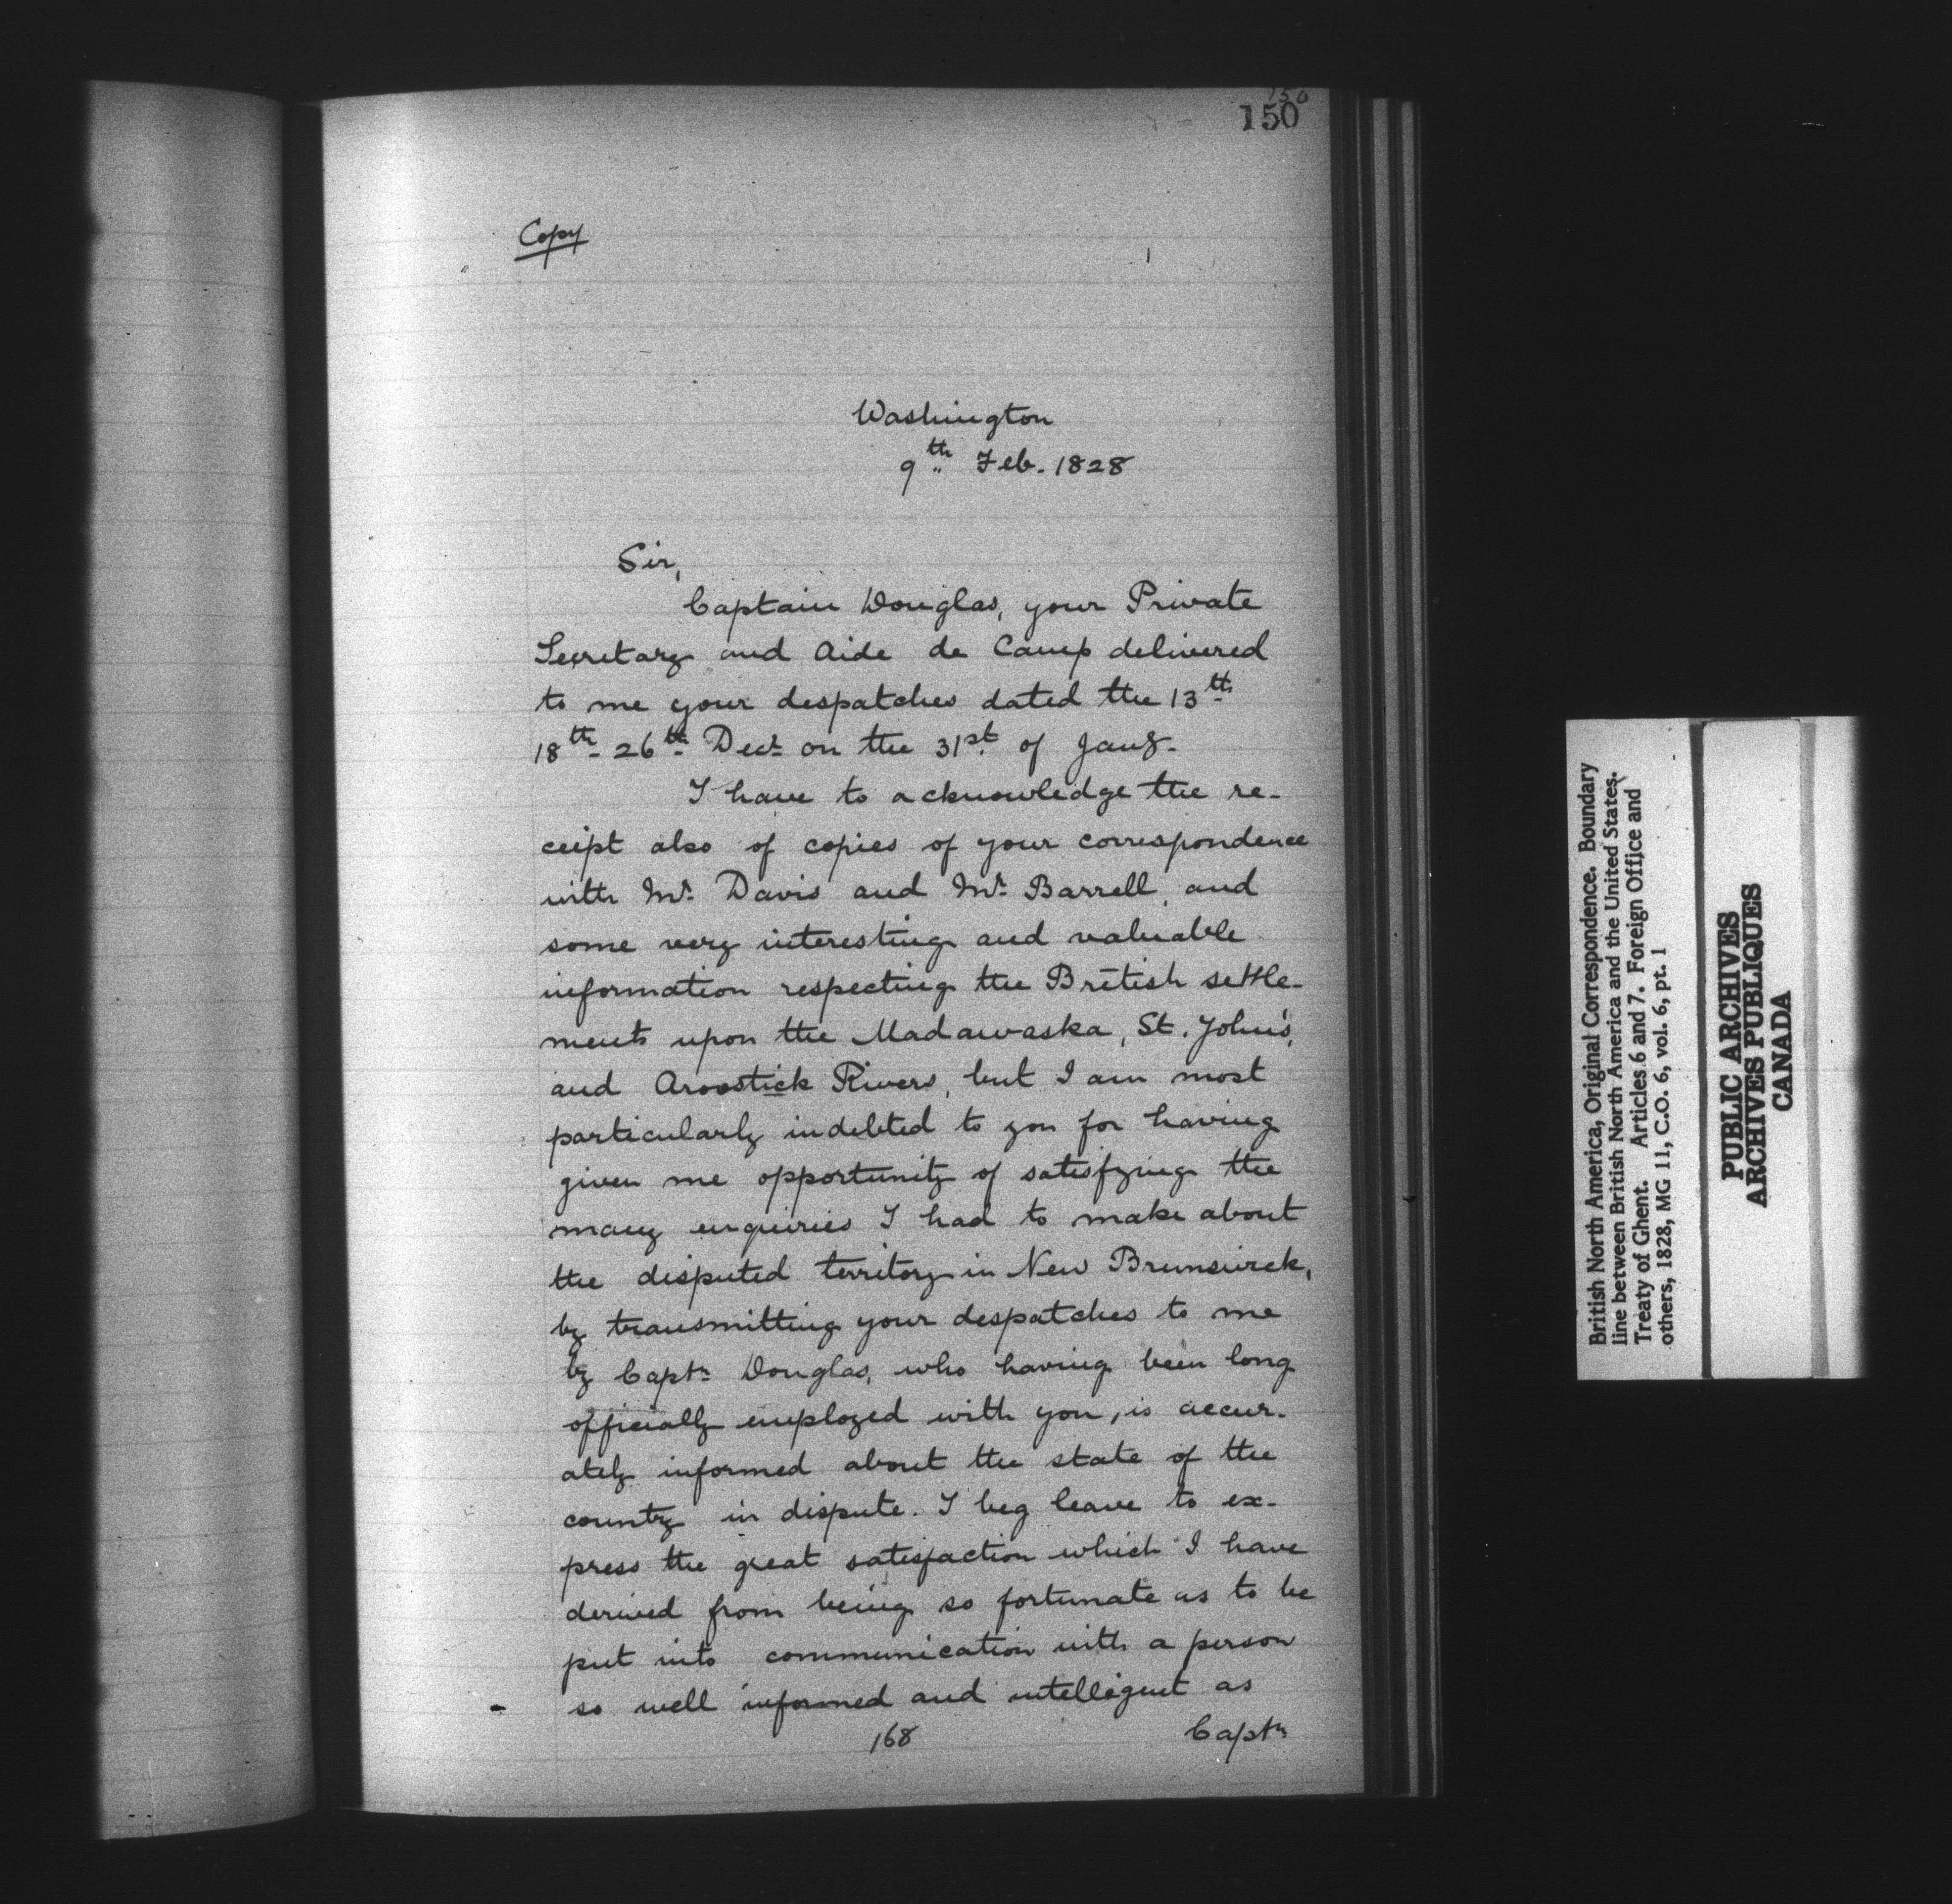 150
150
Copy
Washington
9th Feb. 1828
Sir,
Captain Douglas, your Private
Secretary and Aide de Camp delivered
to me your despatches dated the 13th
18th 26th Decr on the 31st of Jany.
I have to acknowledge the re-
ceipt also of copies of your correspondence
with Mr. Davis and Mr. Barrell, and
some very interesting and valuable
information respecting the British settle-
ments upon the Madawaska, St. John's,
and Aroostick Rivers, but I am most
particularly indebted to you for having
given me opportunity of satisfying the
many enquiries I had to make about
the disputed territory in New Brunswick,
by transmitting your despatches to me
by Captn Douglas, who having been long
officially employed with you, is accur-
ately informed about the state of the
country in dispute. I beg leave to ex-
press the great satisfaction which I have
derived from being so fortunate as to be
put into communication with a person
so well informed and intelligent as
168
Captn
British North America, Original Correspondence. Boundary
line between British North America and the United States.
Treaty of Ghent. Articles 6 and 7. Foreign Office and
others, 1828, MG 11, C.O. 6, vol. 6, pt. 1
PUBLIC ARCHIVES
ARCHIVES PUBLIQUES
CANADA